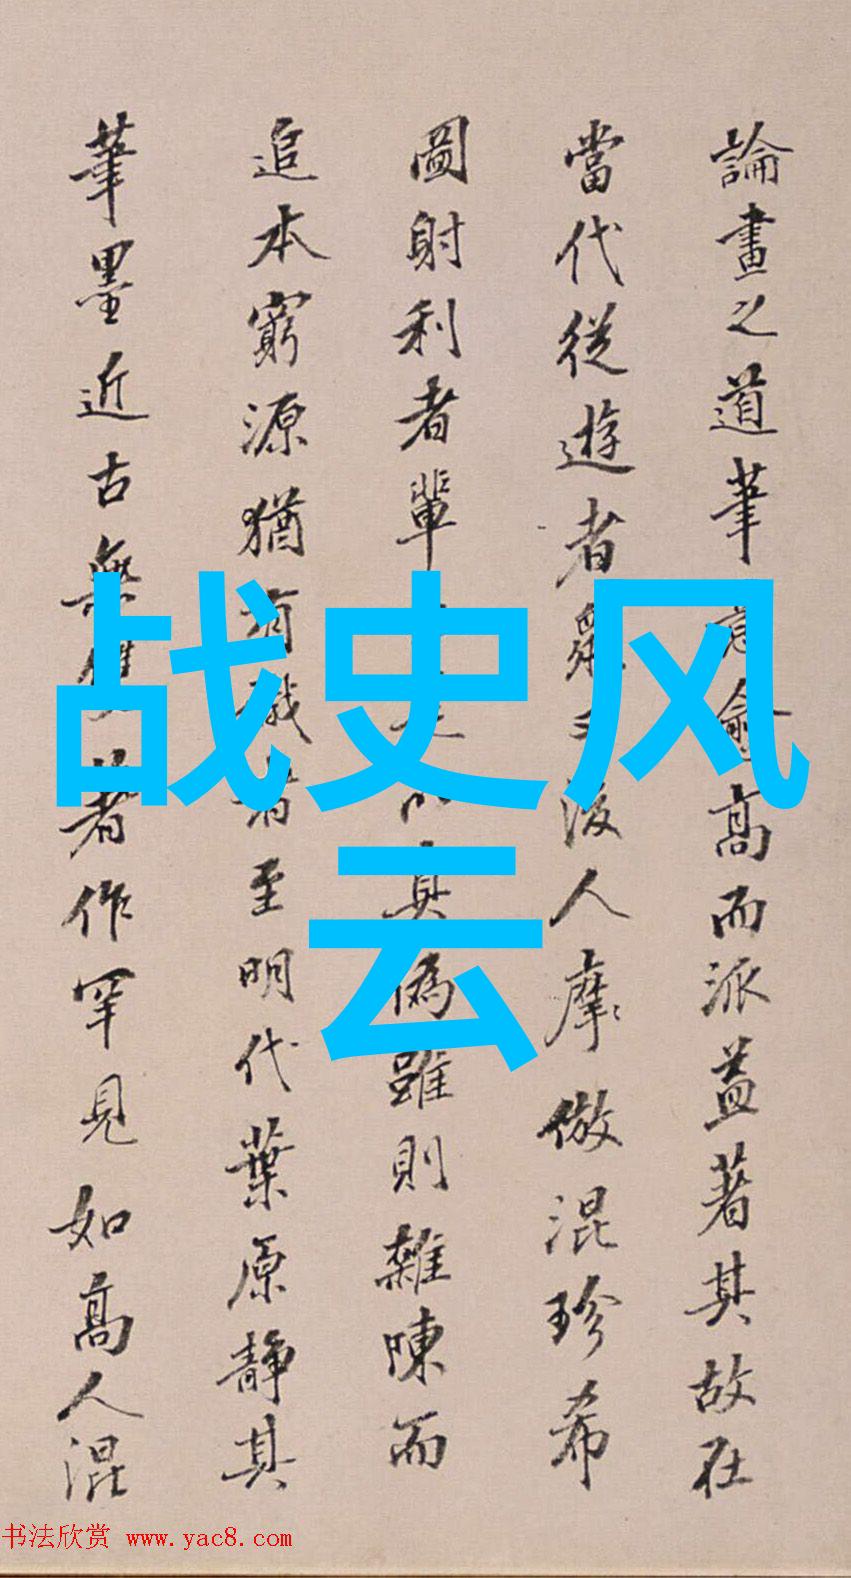 論畫之道筆意愈高而派益著其故在
當代從遊者衆後人摩倣混珍希
圖射利者輩真偽雖則雜陳而
追本窮源猶有識者至明代葉原靜其
筆墨近古無雙著作罕見如高人混
战史风
云
书法欣赏 www.yac8.com